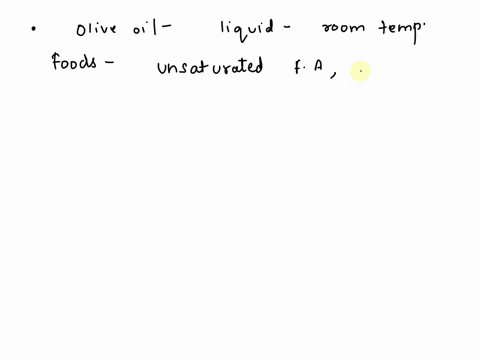 • Olive oil - liquid - room temp.
foods - unsaturated F.A,